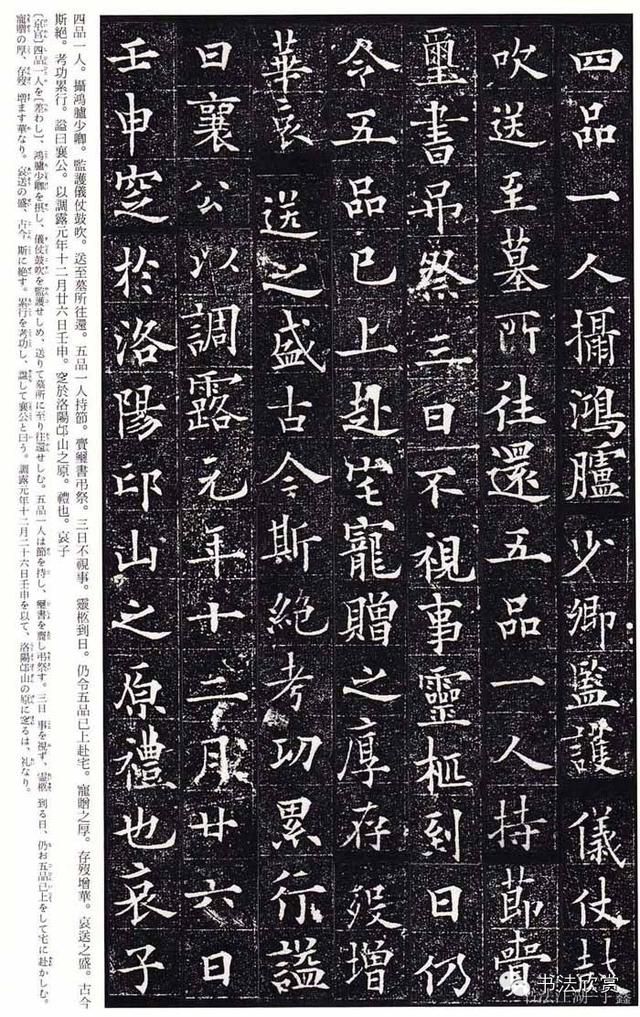 四品一人攝鴻臚少卿監護儀仗鼓
吹送至墓所往還五品一人持節賷
璽書弔祭三日不視事靈柩到日仍
令五品已上赴宅寵贈之厚存歿增
華哀送之盛古今斯絕考功累行謚
曰襄公以調露元年十二月廿六日
壬申窆於洛陽邙山之原禮也哀子
四品一人。攝鴻臚少卿。監護儀仗鼓吹。送至墓所往還。五品一人持節。賷璽書弔祭。三日不視事。靈柩到日。仍令五品已上赴宅。寵贈之厚。存歿增華。哀送之盛。古今
斯絶。考功累行。謚曰襄公。以調露元年十二月廿六日壬申。窆於洛陽邙山之原。禮也。哀子
〔京官〕四品一人を〔差わし〕、鴻臚少卿を摂し、儀仗鼓吹を監護せしめ、送りて墓所に至り往還せしむ。五品一人は節を持し、璽書を賷し弔祭す。三日 事を視ず、霊柩 到る日、仍お五品已上をして宅に赴かしむ。
寵贈の厚、存歿 増ます華なり。哀送の盛、古今 斯に絶す。累行を考功し、謚して襄公と曰う。調露元年十二月二十六日壬申を以て、洛陽邙山の原に窆るは、礼なり。
书法欣赏